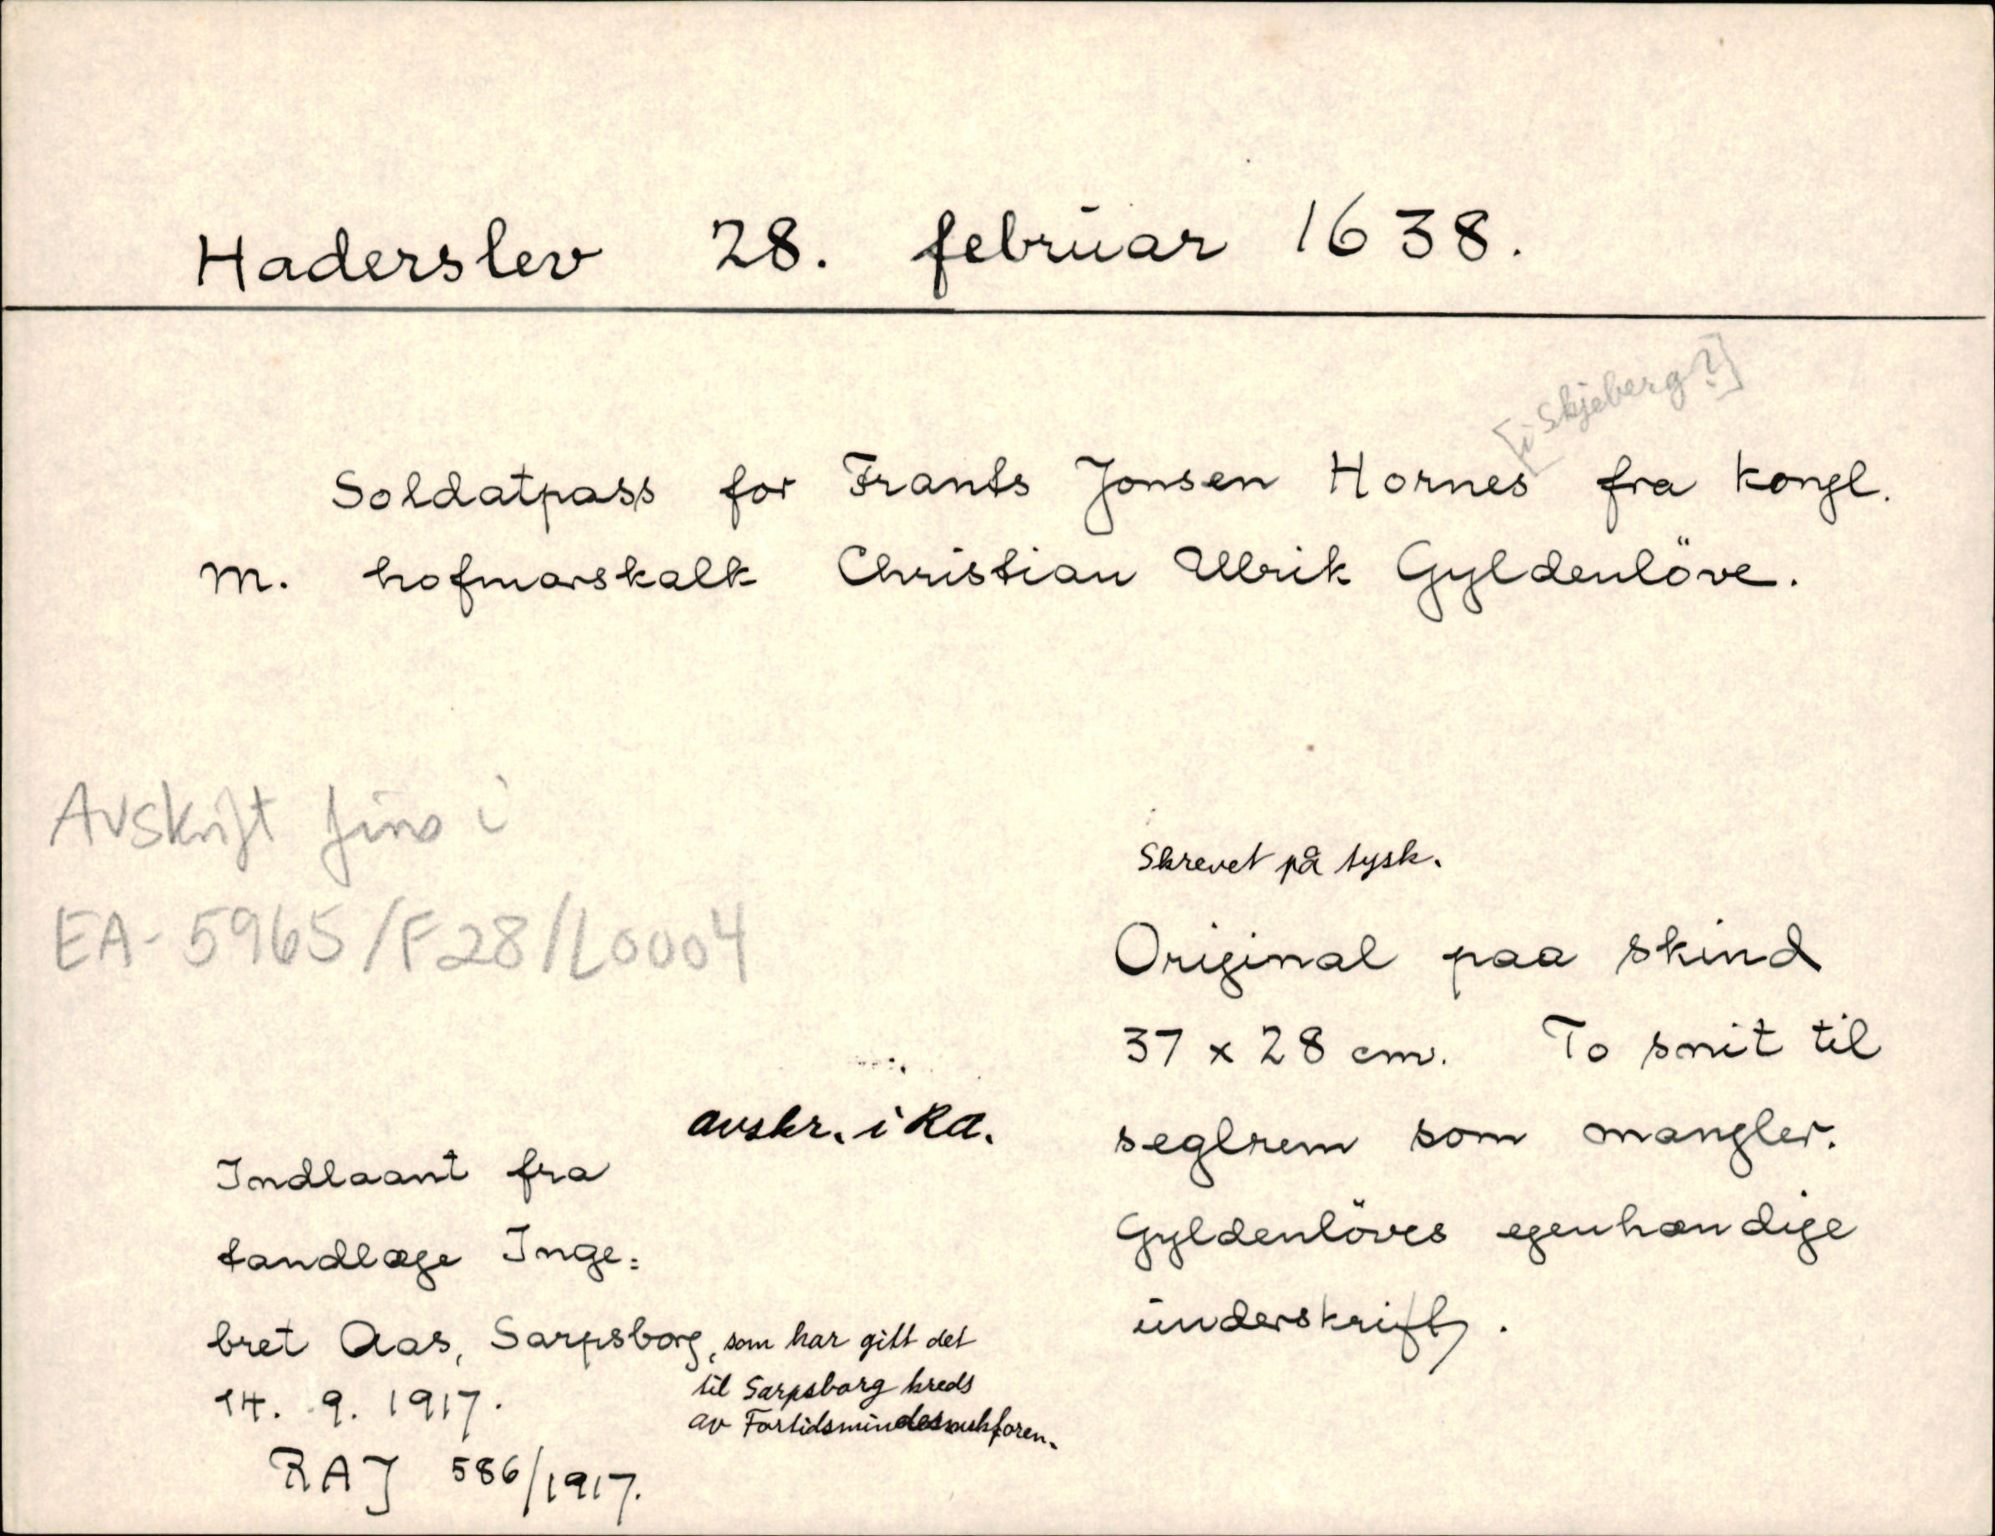 Haderslev 28. februar 1638.
[i Skjeberg?]
Soldatpass for Frants Jonsen Hornes fra kongl.
M. hofmarskalk Christian Ulrik Gyldenlöve.
Avskrift fins i
EA-5965/F28/L0004
Skrevet på tysk.
Original paa skind
37 x 28 cm. To snit til
seglrem som mangler.
Gyldenlöves egenhændige
underskrift.
avskr. i RA.
Indlaant fra
tandlæge Inge=
bret Aas, Sarpsborg, som har gitt det
til Sarpsborg kreds
av Fortidsmindesmerkforen.
14. 9. 1917.
RAJ 586/1917.